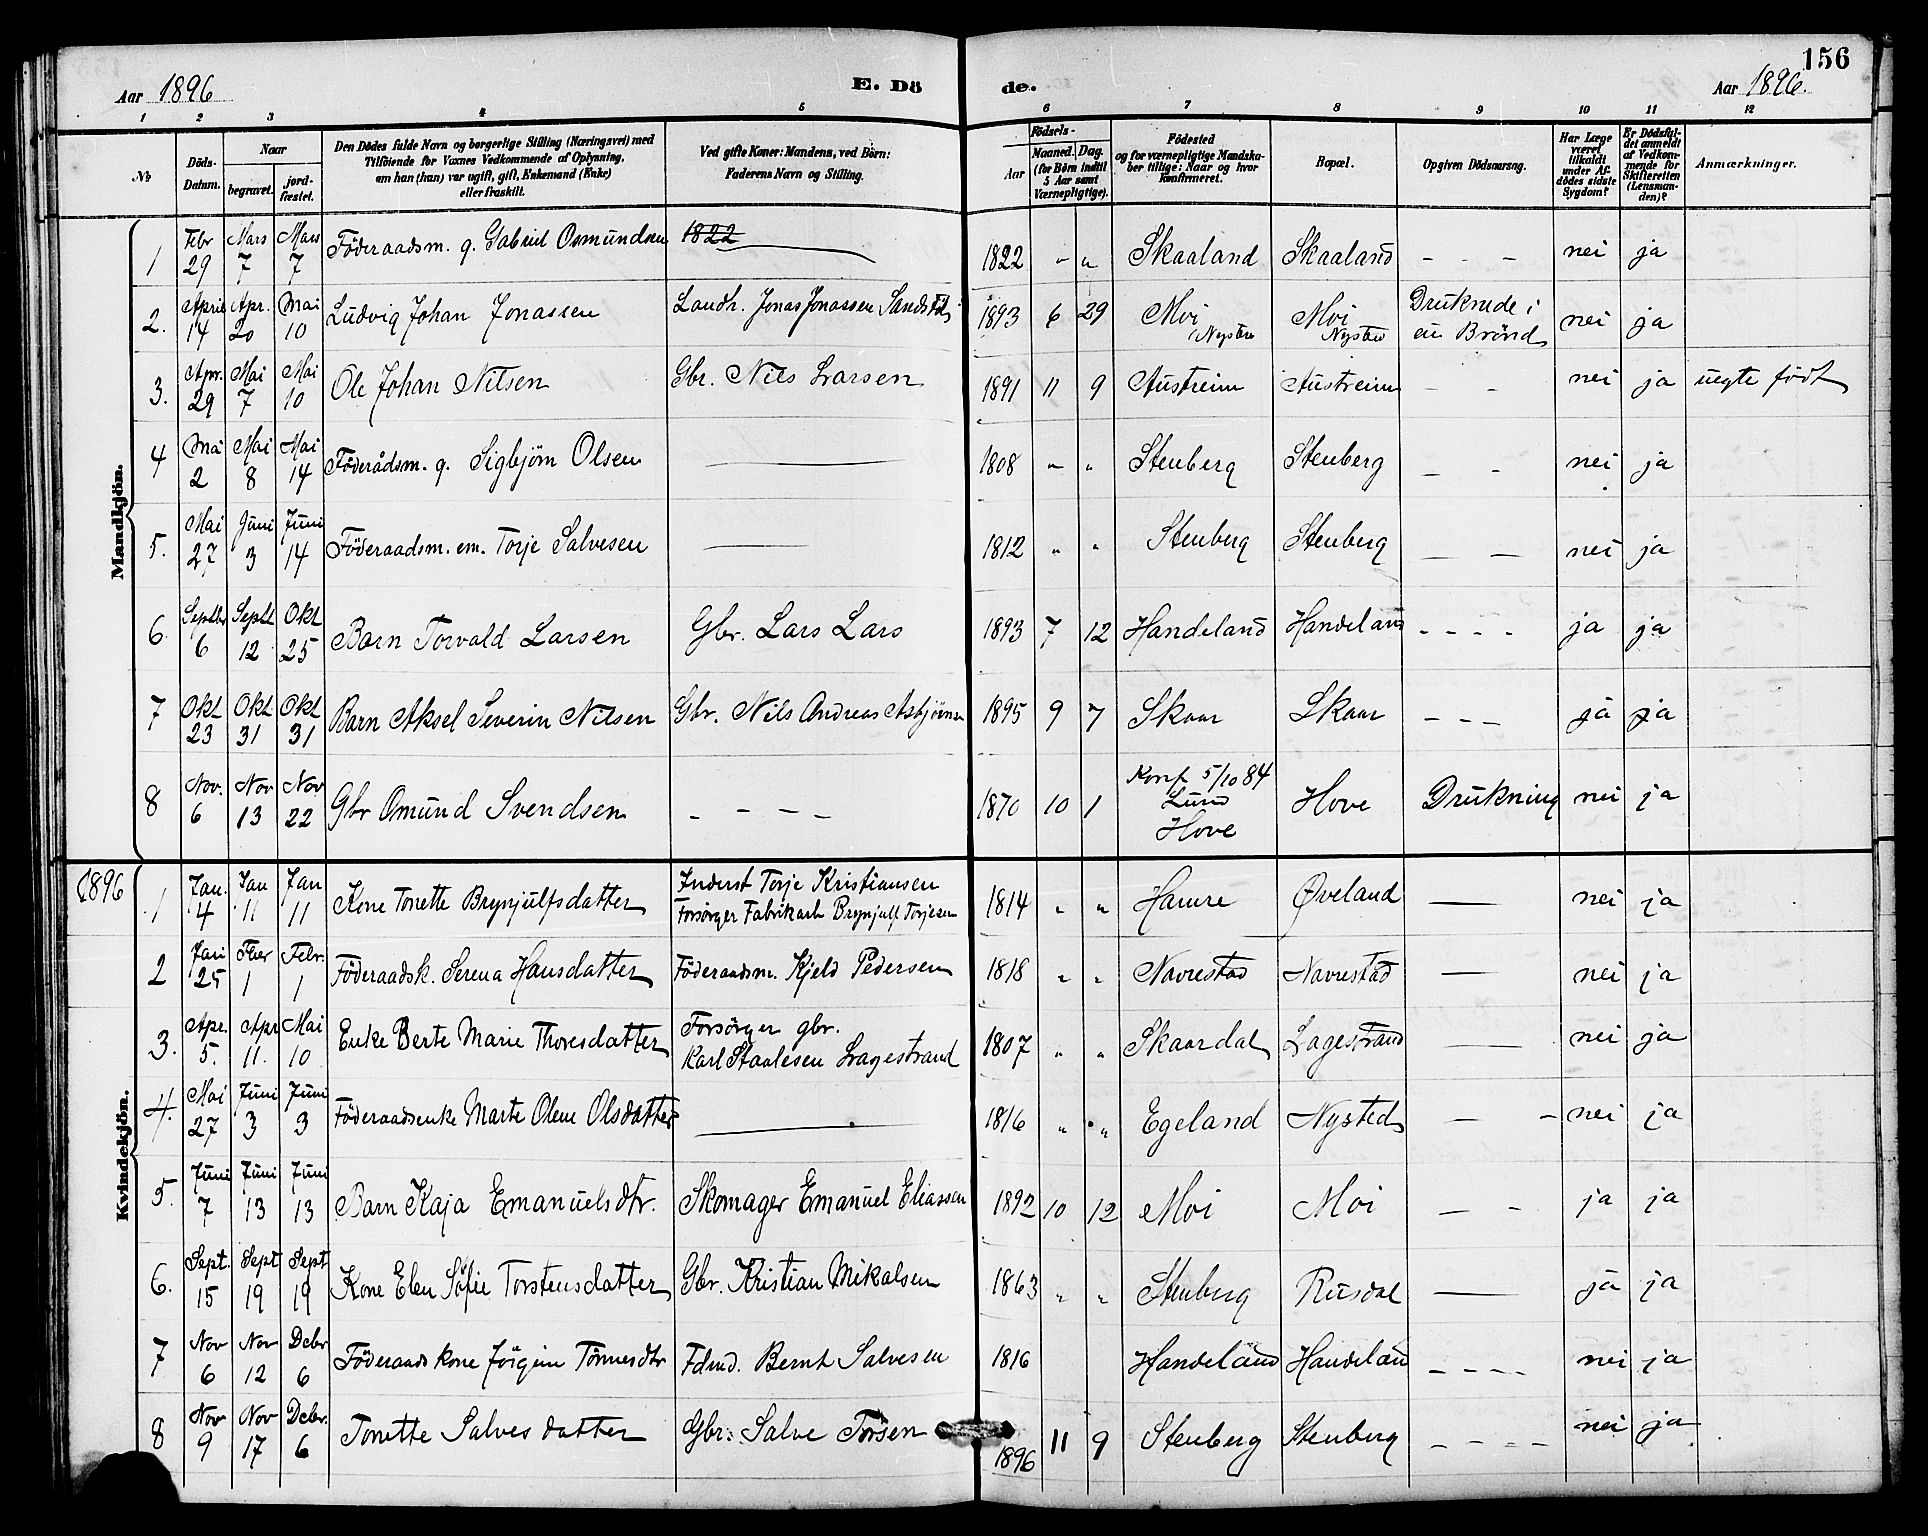 156
Aar 1896
E. Dö
de.
Aar 1896.
1 2 3 4 5 6 7 8 9 10 11 12
№
Döds-
Datum.
Naar
begravet.
jord-
fæstet.
Den Dödes fulde Navn og borgerlige Stilling (Næringsvei) med
Tilföiende for Voxnes Vedkommende af Oplysning,
om han (hun) var ugift, gift, Enkemand (Enke)
eller fraskilt.
Ved gifte Koner: Mandens, ved Börn:
Faderens Navn og Stilling.
Födsels-
Aar
Maaned. Dag.
(for Börn indtil
5 Aar samt
Værnepligtige).
Födested
og for værnepligtige Mandska-
ber tillige: Naar og hvor
konfirmeret.
Bopæl.
Opgiven Dödsaarsag.
Har Læge
været
tilkaldt
under Af-
dödes sidste
Sygdom?
Er Dödsfal-
det anmeldt
af Vedkom-
mende for
Skifteretten
(Lensman-
den)?
Anmærkninger.
Mandkjön.
1 Febr 29 Mars 7 Mars 7 Föderaadsm. g. Gabriel Osmundsen 1822 1822 " " Skaaland Skaaland - - - nei ja
2. April 14 Apr. 20 Mai 10 Ludvig Johan Jonassen Landh. Jonas Jonassen 1893 6 29 Moi Nysted Moi Nysted Druknede i en Brönd nei ja
3. Apr. 29 Mai 7 Mai 10 Ole Johan Nilsen Gbr. Nils Larsen 1891 11 9 Austreim Austreim - - nei ja uegte född
4 Mai 2 Mai 8 Mai 14 Föderådsm. g. Sigbjörn Olsen 1808 " " Stenberg Stenberg - - nei ja
5. Mai 27 Juni 3 Juni 14 Föderaadsm. em. Torje Salvesen 1812 " " Stenberg Stenberg - - nei ja
6. Septbr 6 Septb 12 Okt 25 Barn Torvald Larsen Gbr. Lars Lars 1893 7 12 Handeland Handeland - - - - ja ja
7 Okt 23 Okt 31 Okt 31 Barn Aksel Severin Nilsen Gbr. Nils Andreas Asbjörnsen 1895 9 7 Skaar Skaar - - - ja ja
8 Nov. 6 Nov 13 Nov 22 Gbr Omund Svendsen - - - - 1870 10 1 Konf 5/10 84 Lund Hove Hove Drukning nei ja
1896
Kvindekjön.
1 Jan. 4 Jan 11 Jan 11 Kone Tonette Brynjulfsdatter Inderst Torje Kristiansen
Forsörger Fabrikarb Brynjulf Torjesen 1814 " " Hamre Øveland nei ja
2 Jan 25 Feber 1 Febr. 1 Föderaadsk. Serena Hansdatter Föderaadsm. Kjeld Pedersen 1818 " " Navrestad Navrestad nei ja
3. Apr. 5. Apr 11. Mai 10 Enke Berte Marie Thoresdatter Forsörger gbr.
Karl Staalesen Lagestrand 1807 " " Skaardal Lagestrand nei ja
4. Mai 27 Juni 3 Juni 3 Föderaadsenke Marte Olene Olsdatter 1816 " " Egeland Nysted - - nei ja
5. Juni 7 Juni 13 Juni 13 Barn Kaja Emanuelsdtr. Skomager Emanuel Eliassen 1892 10 12 Moi Moi - - ja ja
6. Sept. 15 Sept 19 Sept 19 Kone Elen Sofie Torstensdatter Gbr. Kristian Mikalsen 1863 " " Stenberg Rusdal ja ja
7 Nov 6 Nov 12 Debr 6 Föderaadskone Jörgine Tönnesdtr Fdmd. Bernt Salvesen 1816 Handeland Handeland - - - - nei ja
8 Nov 9 Nov 17 Debr. 6 Tonette Salvesdatter Gbr. Salve Torsen 1896 11 9 Stenberg Stenberg - - - - nei ja